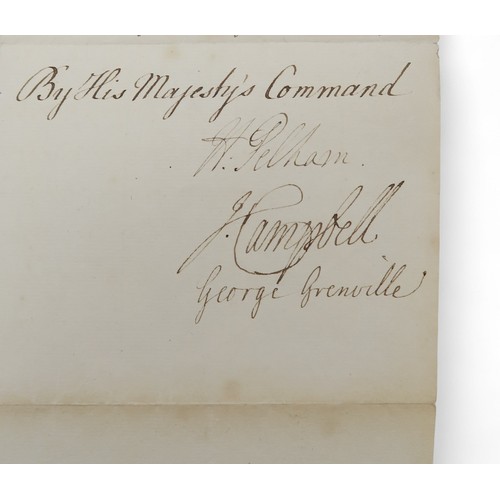 By His Majesty's Command
H. Pelham.
J. Campbell.
George Grenville